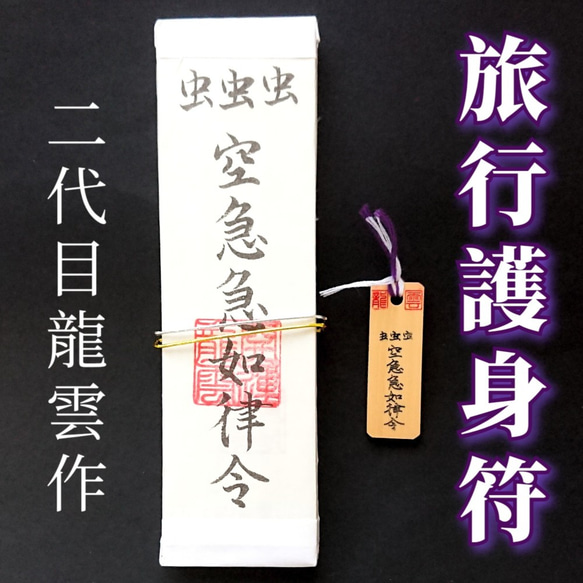 旅行護身符
虫虫虫
空急急如律令
龍雲
虫虫虫
空急急如律令
二代目龍雲作